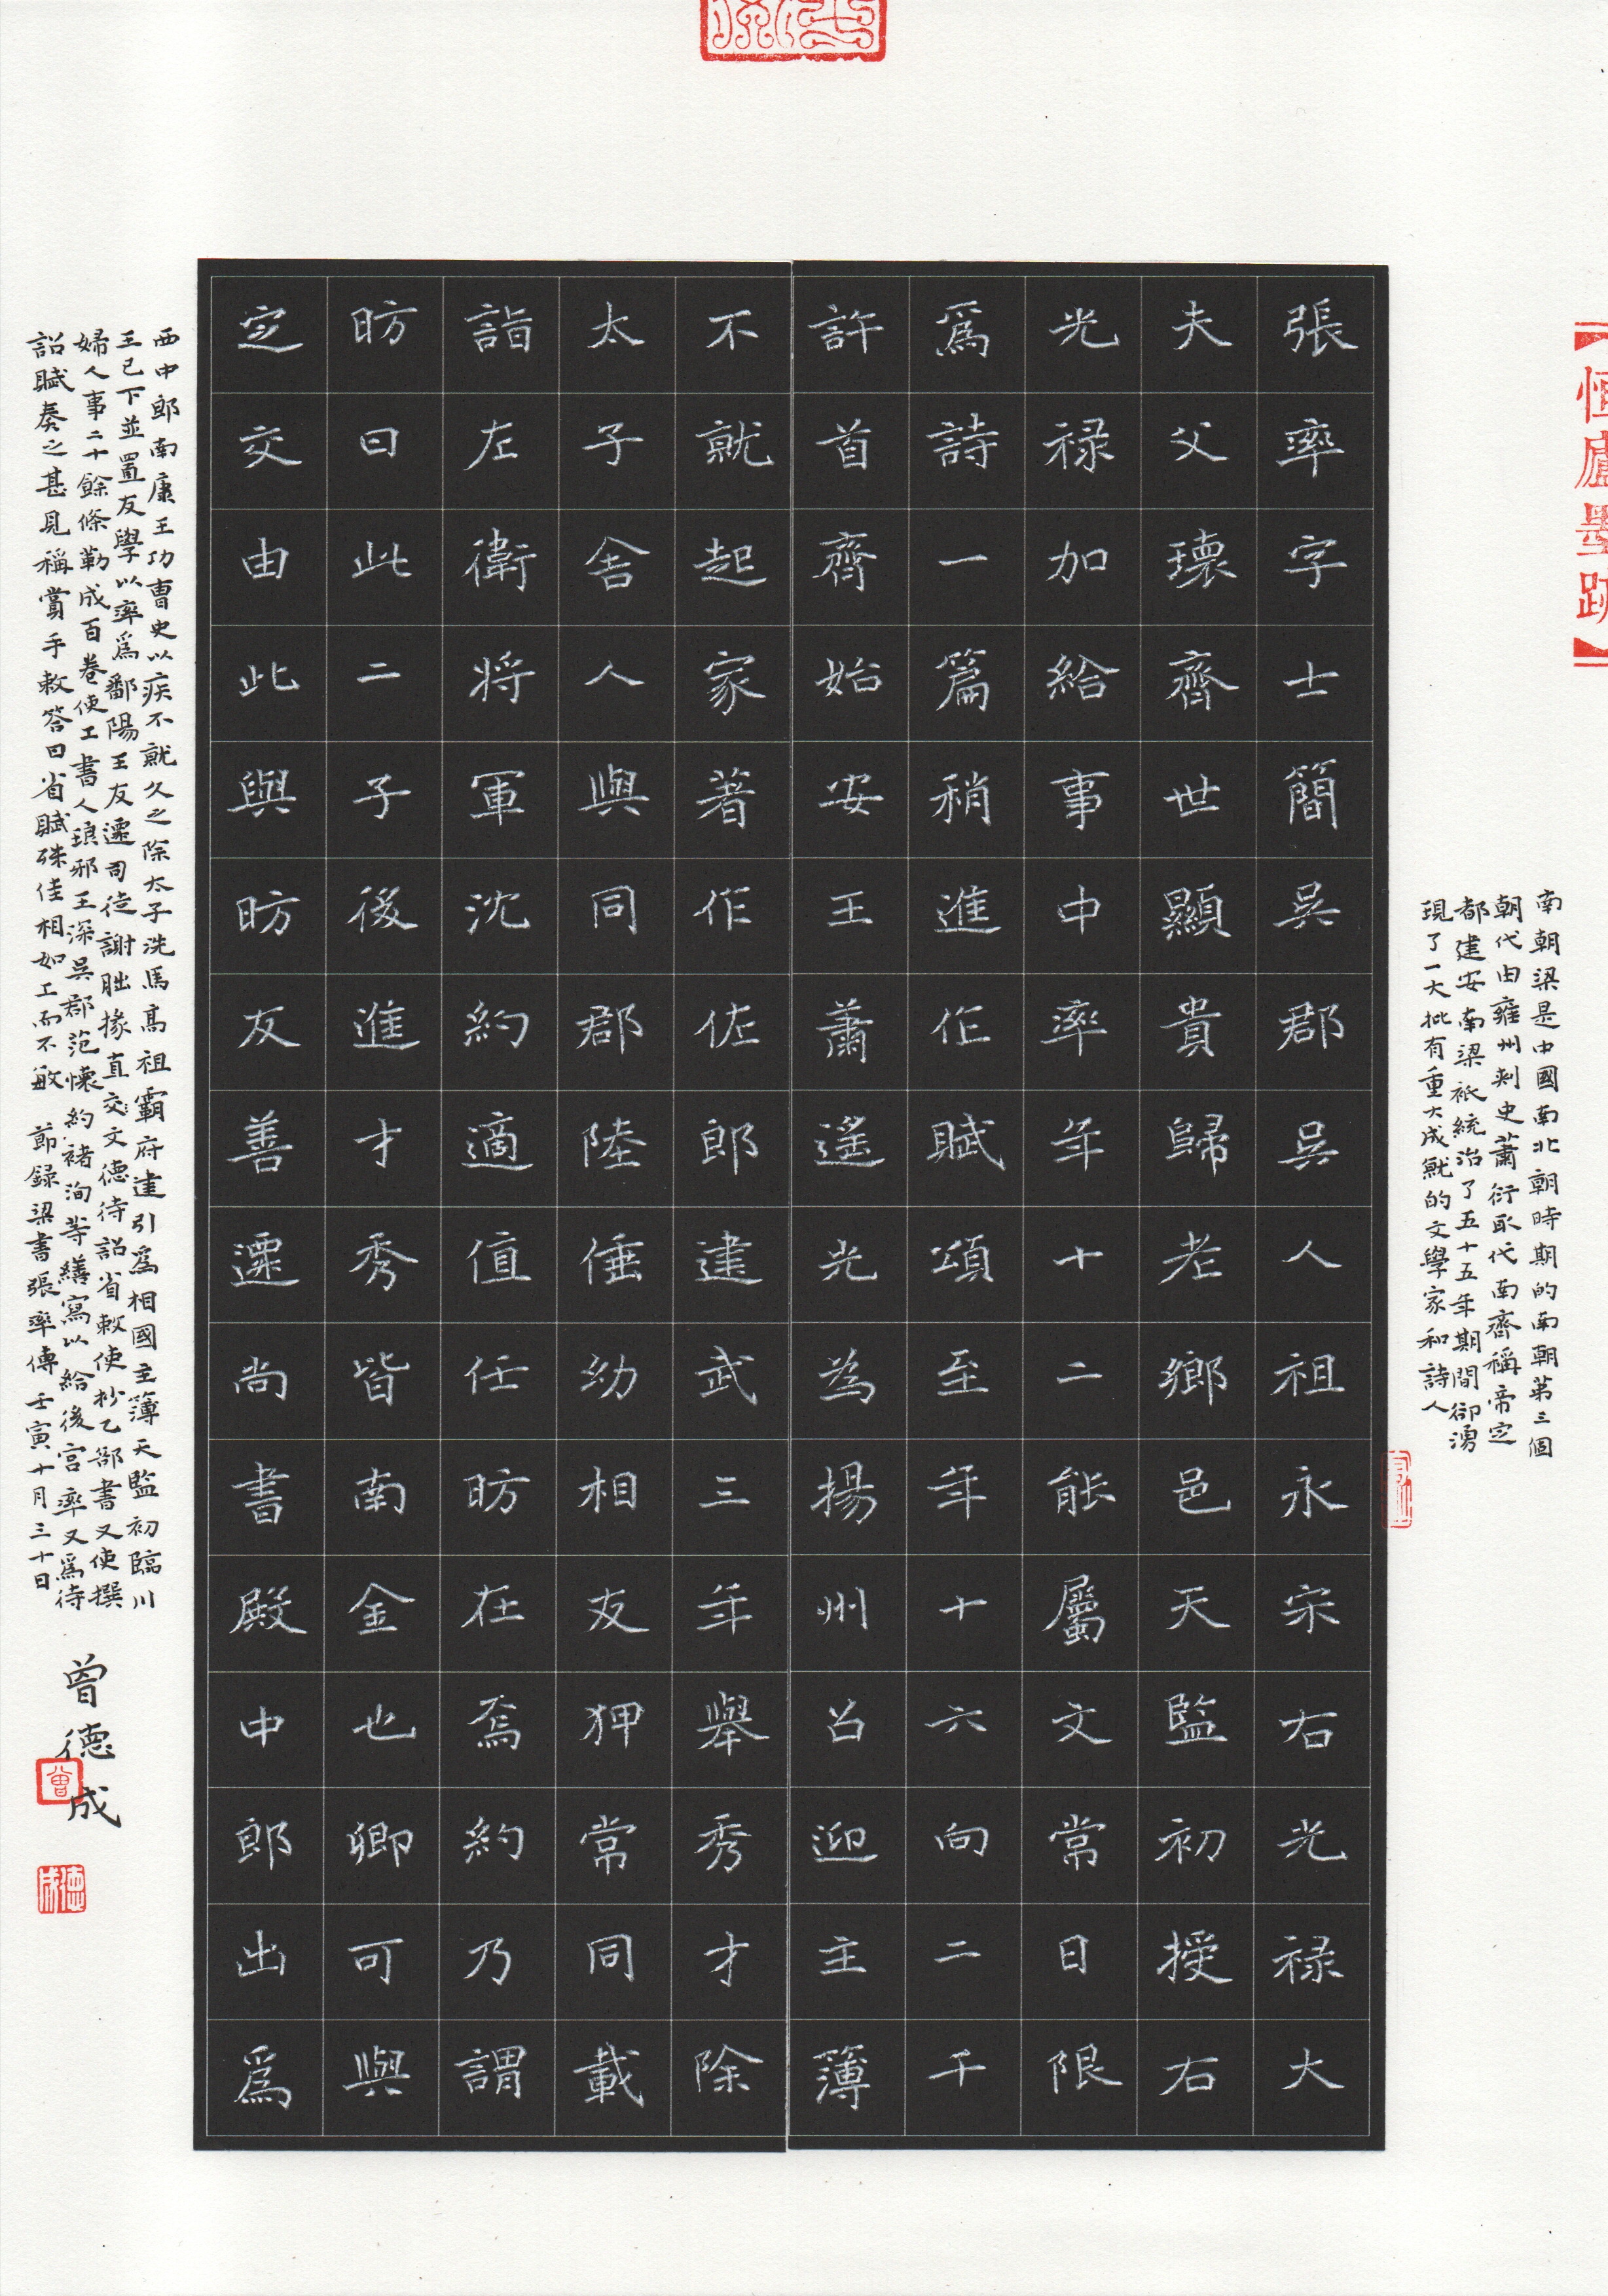 恒廬墨跡
南朝梁是中國南北朝時期的南朝第三個
朝代由雍州刺史蕭衍取代南齊稱帝定
都建安南梁祇統治了五十五年期間卻湧
現了一大批有重大成就的文學家和詩人
張率字士簡吳郡吳人祖永宋右光禄大
夫父瓌齊世顯貴歸老鄉邑天監初授右
光禄加給事中率年十二能屬文常日限
爲詩一篇稍進作賦頌至年十六向二千
許首齊始安王蕭遥光為揚州召迎主簿
不就起家著作佐郎建武三年舉秀才除
太子舍人與同郡陸倕幼相友狎常同載
詣左衛將軍沈約適值任昉在焉約乃謂
昉曰此二子後進才秀皆南金也卿可與
定交由此與昉友善遷尚書殿中郎出爲
西中郎南康王功曹史以疾不就久之除太子洗馬高祖霸府建引爲相國主簿天監初臨川
王已下並置友學以率爲鄱陽王友遷司徒謝朏掾直交文德待詔省敕使抄乙部書又使撰
婦人事二十餘條勒成百卷使工書人琅邪王深吳郡范懷約褚洵等繕寫以給後宮率又爲待
詔賦奏之甚見稱賞手敕答曰省賦殊佳相如工而不敏 節録梁書張率傳壬寅十月三十日
曾德成
曾
德成